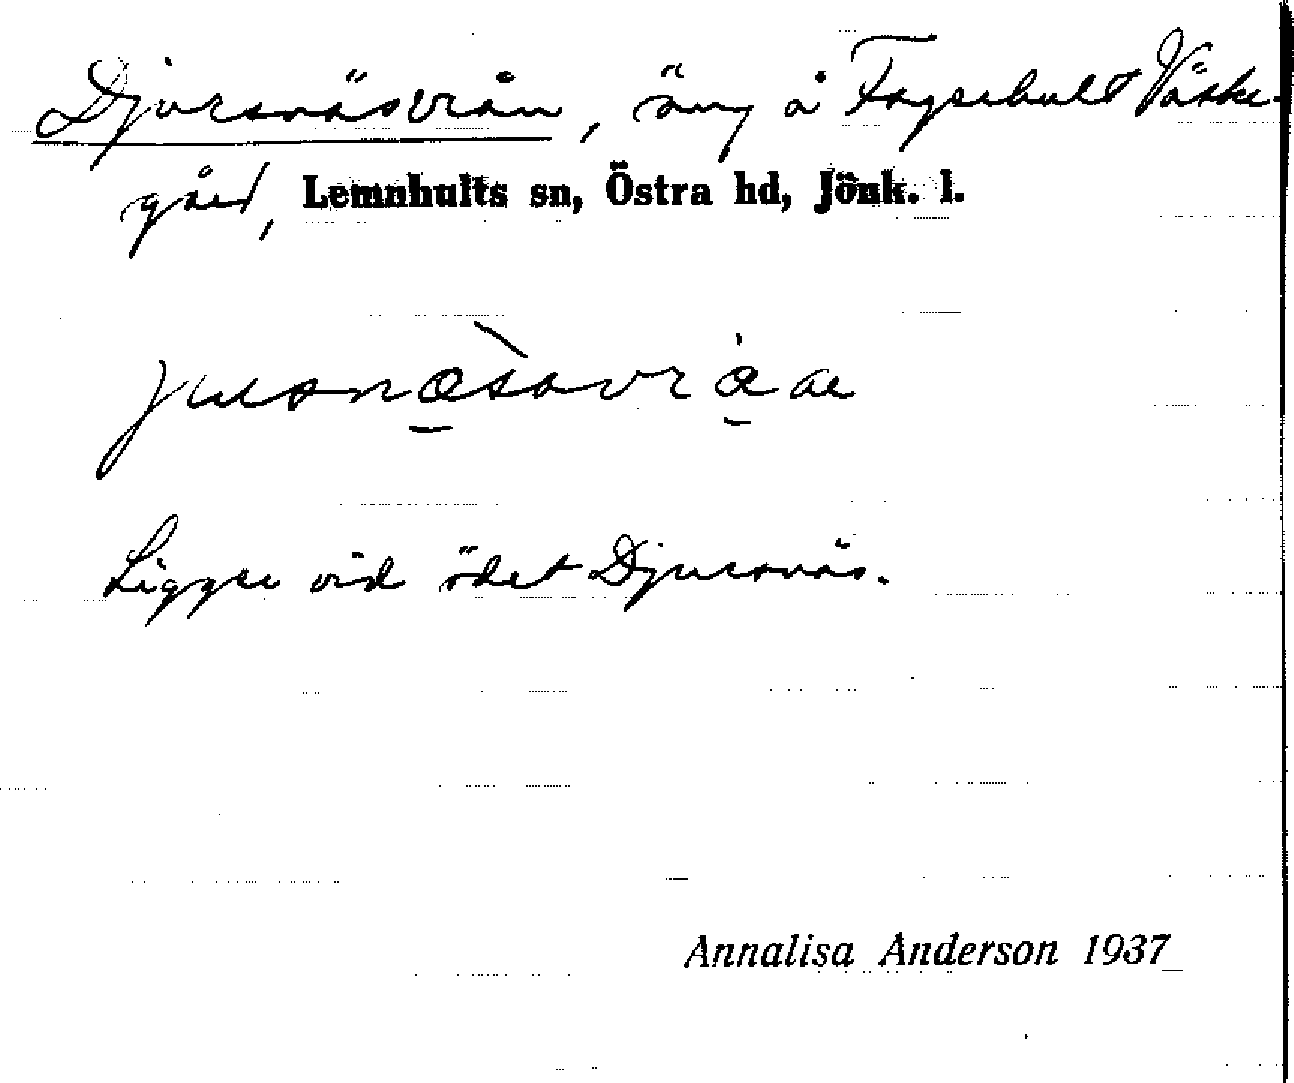 Djursnäsvrån, äng å Fagerhult Väster-
gård, Lemnhults sn, Östra hd, Jönk. l.
Ligger vid ödet Djursnäs.
Annalisa Anderson 1937